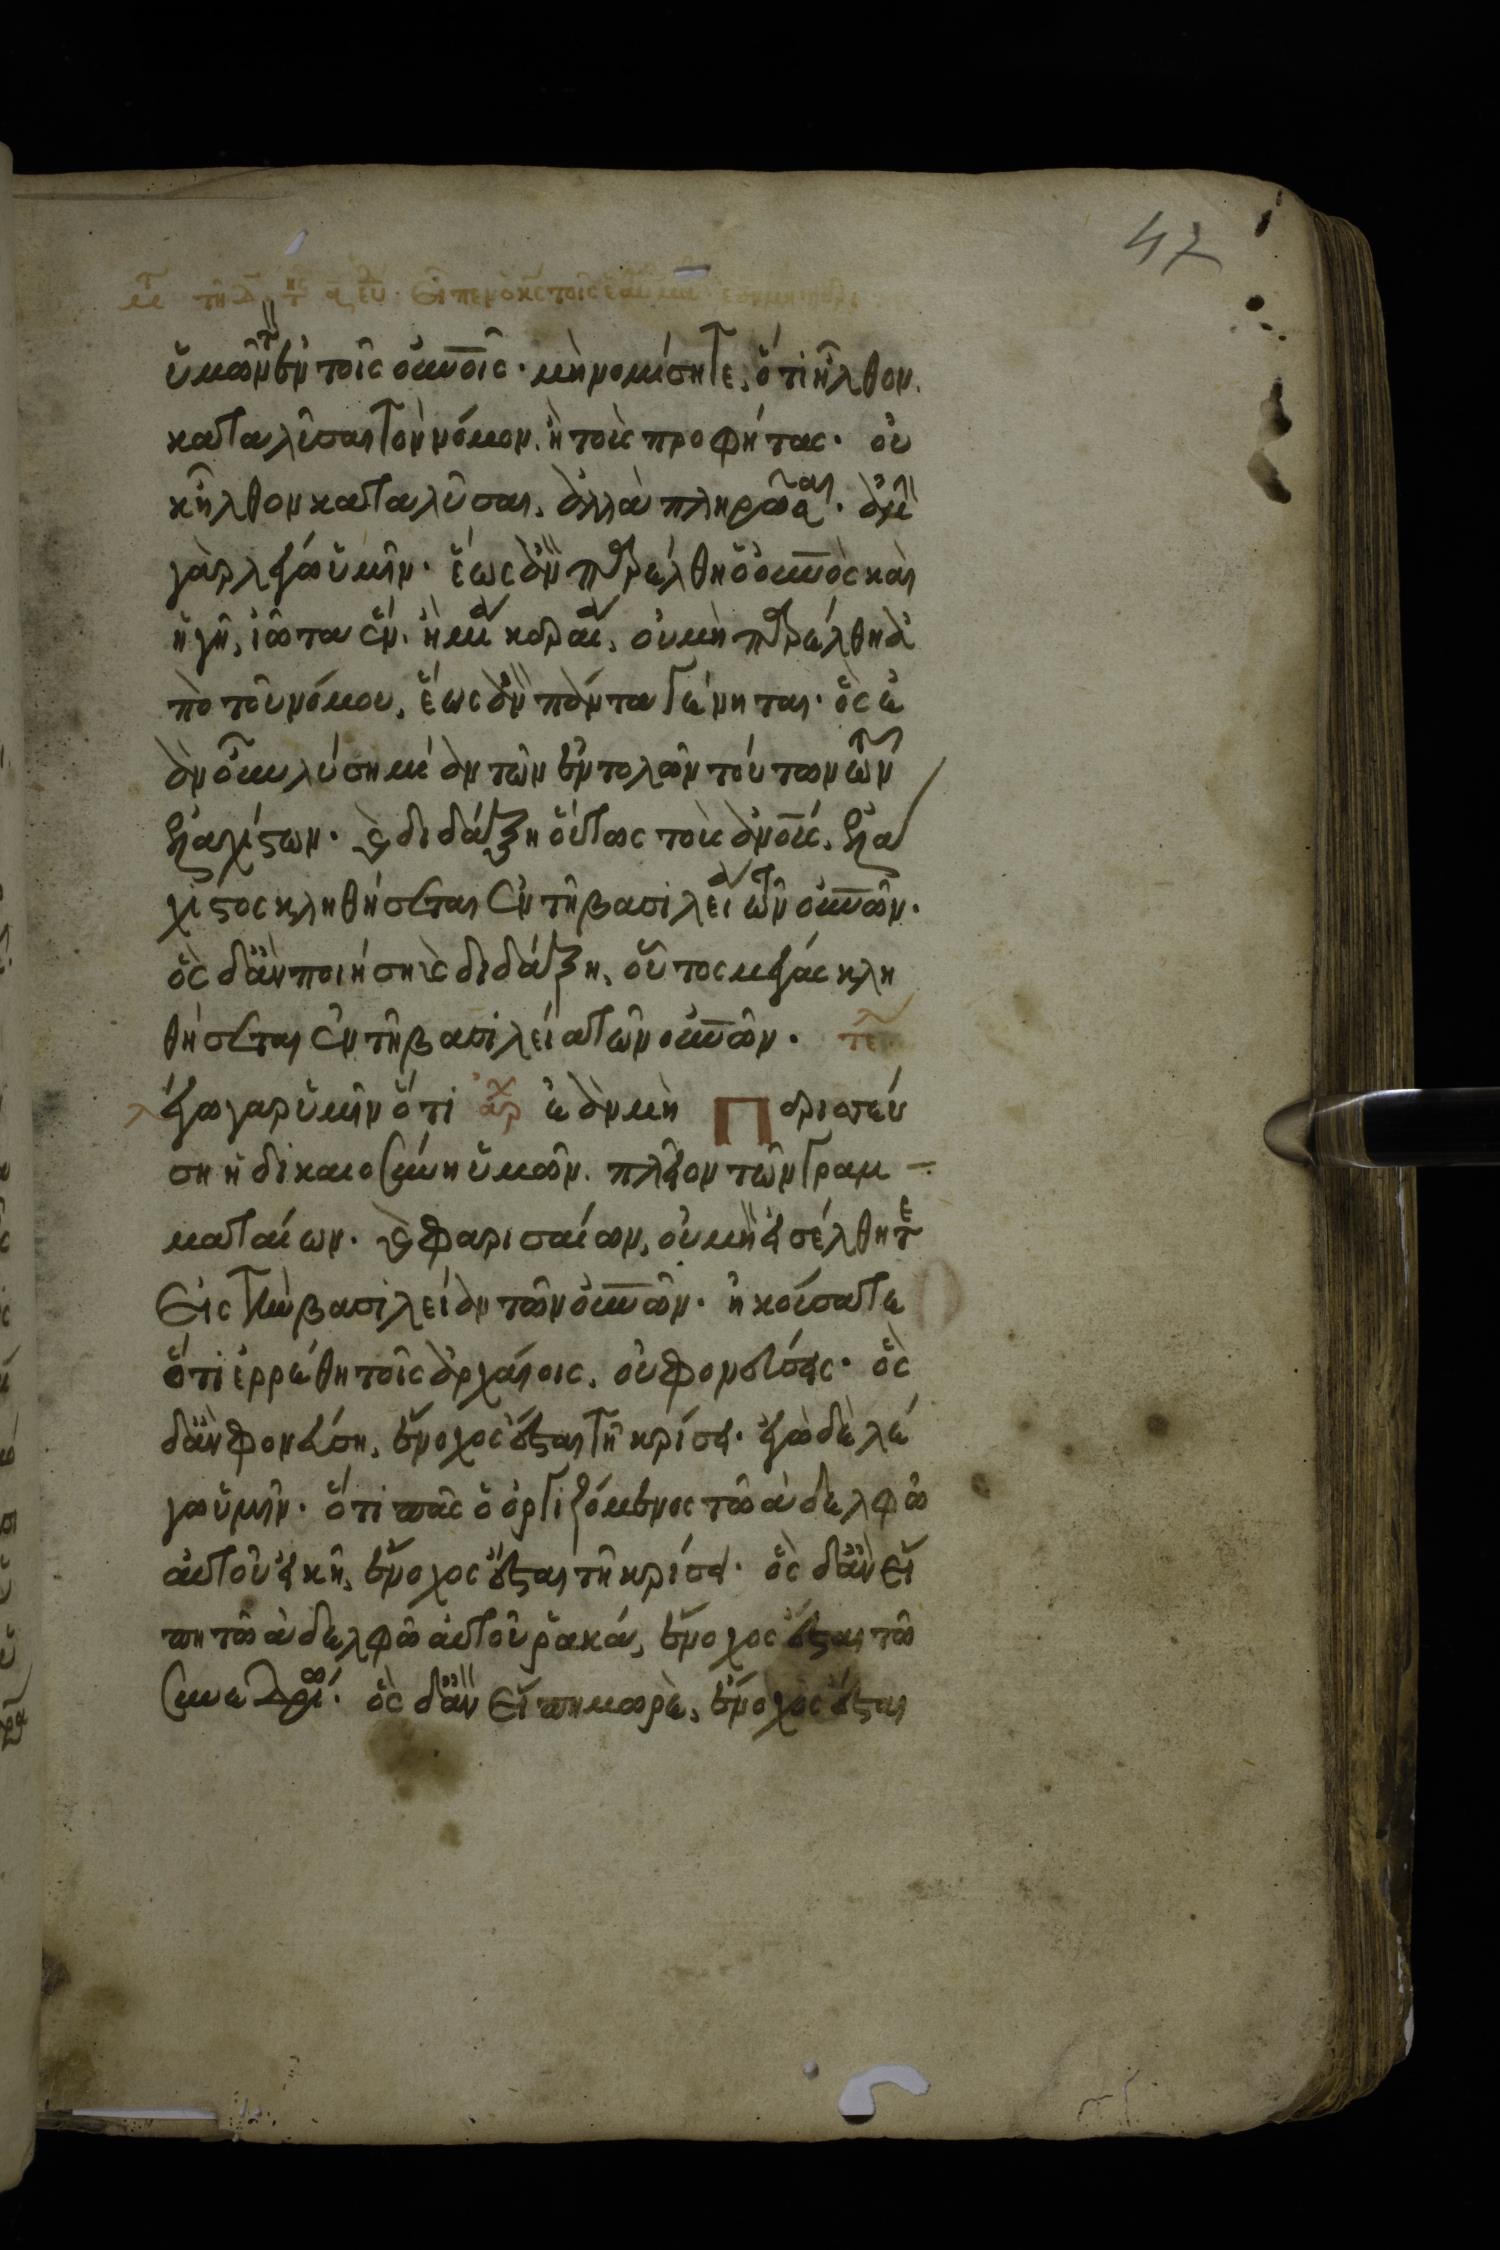 47
εἶπεν ὁ κς τοῖς ἑαυ μα
ὑμῶν τὸν ἐν τοῖς οὐνοῖς· μὴ νομίσητε, ὅτι ἦλθον
καταλῦσαι τὸν νόμον, ἢ τοὺς προφήτας· οὐ
κ ἦλθον καταλῦσαι, ἀλλὰ πληρῶσαι· ἀμὴ
γὰρ λέγω ὑμῖν· ἕως ἂν παρέλθη ὁ οὐνος καὶ
ἡ γῆ, ἰῶτα ἓν. ἢ μία κεραία, οὐ μὴ παρέλθη ἀ
πὸ τοῦ νόμου, ἕως ἂν πάντα γένηται· ὃς ἐ
ὰν οὖν λύση μίαν τῶν ἐντολῶν τούτων τῶν
ἐλαχίστων· καὶ διδάξη οὕτως τοὺς ἀνους, ἐλά
χιστος κληθήσεται ἐν τῆ βασιλεία τῶν οὐνῶν·
ὃς δ' ἂν ποιήση καὶ διδάξη, οὗτος μέγας κλη
θήσεται ἐν τῆ βασιλεία τῶν οὐνῶν· τε
λέγω γαρ ὑμῖν ὅτι αρχ ἐὰν μὴ Περισσεύ
ση ἡ δικαιοσύνη ὑμῶν. πλεῖον τῶν γραμ
ματαίων· καὶ φαρισαίων, οὐ μὴ εἰσέλθητε
εἰς τὴν βασιλείαν τῶν οὐνῶν· ἠκούσατε
ὅτι ἐρρέθη τοῖς ἀρχαίοις, οὐ φονεύσεις· ὃς
δ' ἂν φονεύση, ἔνοχος ἔσται τῆ κρίσει· ἐγὼ δὲ λέ
γω ὑμῖν· ὅτι πᾶς ὁ ὀργιζόμενος τῶ ἀδελφῶ
αὐτοῦ εἰκῆ, ἔνοχος ἔσται τῆ κρίσει· ὃς δ' ἂν εἴ
πη τῶ ἀδελφῶ αὐτοῦ ῥακά, ἔνοχος ἔσται τῶ
συνεδρίω· ὃς δ' ἂν εἴπη μωρὲ, ἔνοχος ἔσται